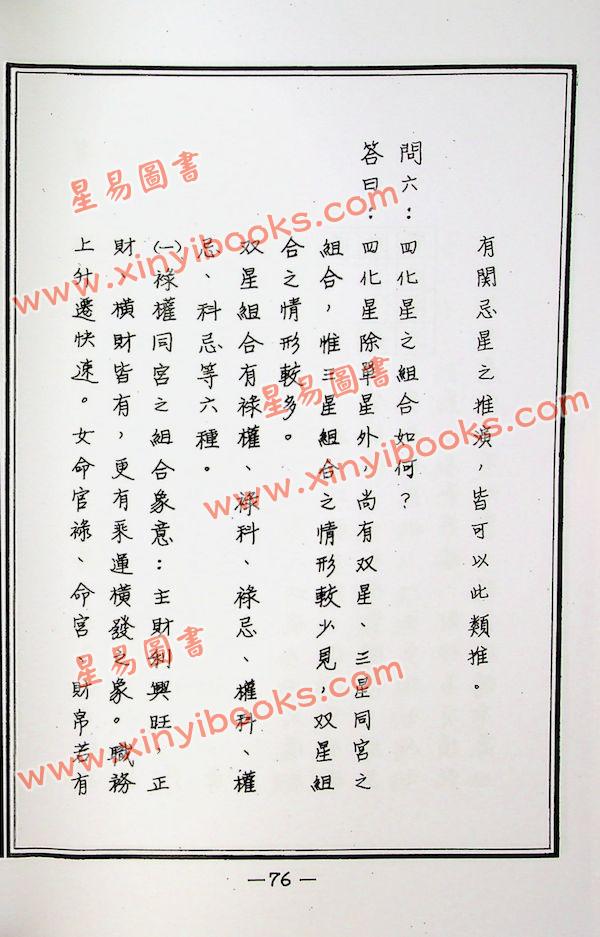 有関忌星之推演，皆可以此類推。
問六：四化星之組合如何？
答曰：四化星除單星外，尚有双星、三星同宮之
組合，惟三星組合之情形較少見，双星組
合之情形較多。
双星組合有祿權、祿科、祿忌、權科、權
忌、科忌等六種。
㈠祿權同宮之組合象意：主財利興旺，正
財、橫財皆有，更有乘運橫發之象。職務
上升遷快速。女命官祿、命宮、財帛若有
—76—
星易圖書
www.xinyibooks.com
星易圖書
www.xinyibooks.com
星易圖書
www.xinyibooks.com